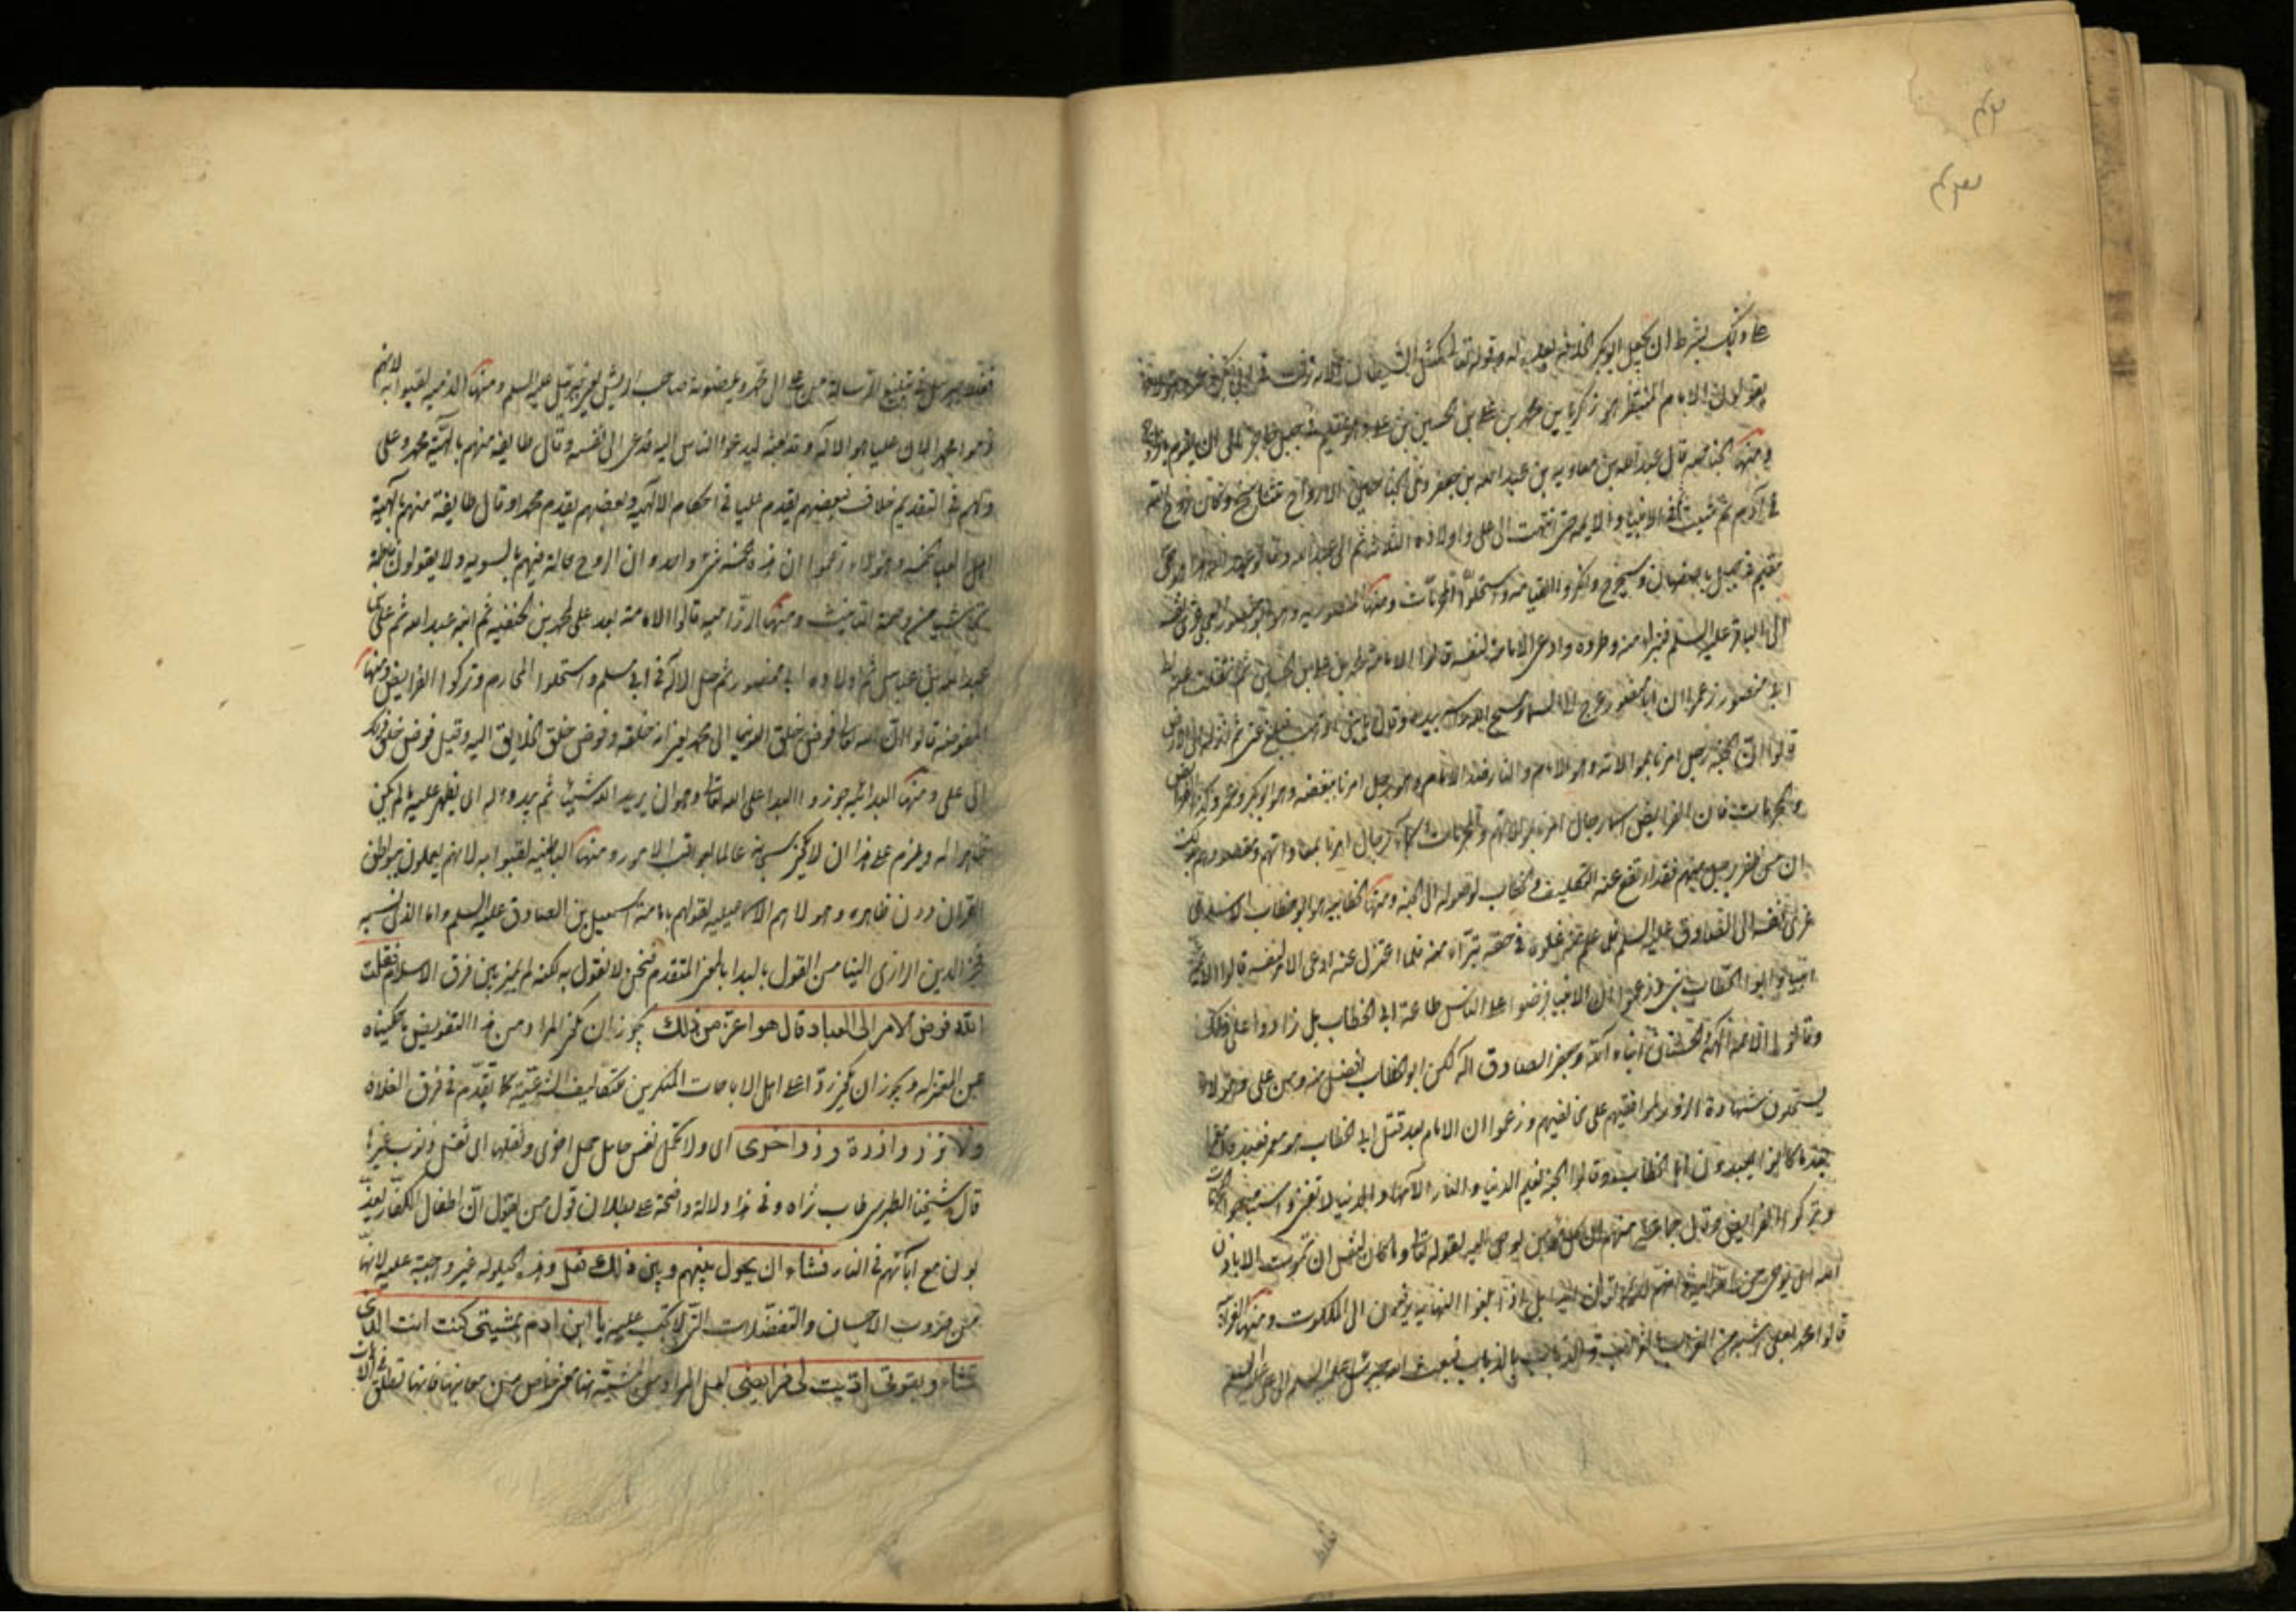 على ذلك بشرط ان يجعل ابو بكر الخلافة بعده له وقوله تعالى كمثل الشيطان الآية نزلت في ابي بكر وعمر وهؤلاء
يقولون الامام المنتظر هو زكريا بن محمد بن علي بن الحسين بن علي وهو مقيم في جبل حاجر الى ان يؤمر بالخروج
ومنها الجناحية قال عبد الله بن معاوية بن عبد الله بن جعفر ذي الجناحين الارواح تتناسخ وكان روح الله
في آدم ثم شيث ثم الانبياء والائمة حتى انتهت الى علي واولاده الثلاثة ثم الى عبد الله وقالوا عبد الله هذا حي
مقيم في جبل باصفهان وسيخرج وانكروا القيامة واستحلوا المحرمات ومنها المنصورية هو ابو منصور العجلي عزى نفسه
الى الباقر عليه السلم فتبرأ منه وطرده وادعى الامامة لنفسه قالوا الامامة لمحمد بن علي بن الحسين ثم انتقلت عنه الى
ابي منصور زعموا ان ابا منصور عرج الى السماء ومسح الله رأسه بيده وقال يا بني اذهب فبلغ عني ثم انزله الى الارض
قالوا ان الجنة رجل امرنا بموالاته وهو الامام والنار ضد الامام وهو رجل امرنا ببغضه وهو ابو بكر وعمر وكذا الفرائض
والمحرمات فان الفرائض اسماء رجال امرنا بموالاتهم والمحرمات اسماء رجال امرنا بمعاداتهم ومقصودهم بذلك
ان من ظفر برجل منهم فقد ارتفع عنه التكليف والخطاب لوصوله الى الجنة ومنها الخطابية هو ابو الخطاب الاسدي
عزى نفسه الى الصادق عليه السلم فلما علم منه غلوه في حقه تبرأ منه فلما اعتزل عنه ادعى الامر لنفسه قالوا الائمة
انبياء وابو الخطاب نبي وزعموا ان الانبياء فرضوا على الناس طاعة ابي الخطاب بل زادوا على ذلك
وقالوا الائمة آلهة والحسنان ابناء الله وجعفر الصادق اله لكن ابو الخطاب افضل منه ومن علي وهؤلاء
يستحلون شهادة الزور لموافقيهم على مخالفيهم وزعموا ان الامام بعد قتل ابي الخطاب هو معمر فعبدوا معمرا
بعد ما كانوا يعبدون ابا الخطاب وقالوا الجنة نعيم الدنيا والنار آلامها والدنيا لا تفنى واستباحوا المحرمات
وتركوا الفرائض وقال جماعة منهم ان كل مؤمن يوحى اليه لقوله تعالى وما كان لنفس ان تموت الا باذن
الله اي بوحي من الله اليه وانهم لا يموتون بل اذا بلغوا النهاية يرفعون الى الملكوت ومنها الغرابية
قالوا محمد بعلي اشبه من الغراب بالغراب والذباب بالذباب فبعث الله جبرئيل عليه السلم الى علي عليه السلم
فغلط جبرئيل في تبليغ الرسالة من علي الى محمد ويلعنون صاحب الريش يعنون جبرئيل عليه السلم ومنها الذمية لقبوا به لانهم
ذموا محمدا لان عليا هو الاله وقد بعثه ليدعو الناس اليه فدعى الى نفسه وقال طايفة منهم بالهية محمد وعلي
ولهم في التقديم خلاف فبعضهم يقدم عليا في احكام الالهية وبعضهم يقدم محمدا وقال طايفة منهم بالهية
اهل العبا الخمسة وهؤلاء زعموا ان هذه الخمسة شئ واحد وان الروح حالة فيهم بالسوية ولا يقولون فاطمة
تحاشيا من وصمة التانيث ومنها الرزامية قالوا الامامة بعد علي لمحمد بن الحنفية ثم ابنه عبد الله ثم علي بن
عبد الله بن عباس ثم اولاده الى منصور ثم حل الاله في ابي مسلم واستحلوا المحارم وتركوا الفرايض ومنها
المفوضة قالوا ان الله تعالى فوض خلق الدنيا الى محمد يعني انه خلقه وفوض خلق الخلايق اليه وقيل فوض خلق ذلك
الى علي ومنها البدائية جوزوا البدا على الله تعالى وهو ان يريد الله شيئا ثم يبدو له اي يظهر عليه ما لم يكن
ظاهرا له ويلزم على هذا ان لا يكون سبحانه عالما بعواقب الامور ومنها الباطنية لقبوا به لانهم يعملون ببواطن
القرآن دون ظاهره وهؤلاء هم الاسماعيلية لقولهم بامامة اسمعيل بن الصادق عليه السلم واما الذي نسبه
فخر الدين الرازي الينا من القول بالبدا بالمعنى المتقدم فنحن لا نقول به لكنه لم يميز بين فرق الاسلام فقلت
الله فوض الامر الى العباد قال هو اعز من ذلك يجوز ان يكون المراد من هذا التفويض ما حكيناه
عن المعتزلة ويجوز ان يكون ردا على اهل الاباحات المنكرين للتكاليف الشرعية كما تقدم في فرق الغلاة
ولا تزر وازرة وزر اخرى اي ولا تحمل نفس حامل حمل اخرى وثقلها اي ثقل ذنوب غيرها
قال شيخنا الطبرسي طاب ثراه وفي هذا دلالة واضحة على بطلان قول من يقول ان اطفال الكفار يعذ
بون مع آبائهم في النار فشاء ان يحول بينهم وبين ذلك فعل وهذه الحيلولة غير واجبة عليه لانها
من ضروب الاحسان والتفضلات التي لا تجب عليه يا ابن ادم بمشيتي كنت انت الذي
تشاء وبقوتي اديت لي فرايضي لعل المراد من المشية هنا معنى خاص من معانيها فانها تطلق في الآيات